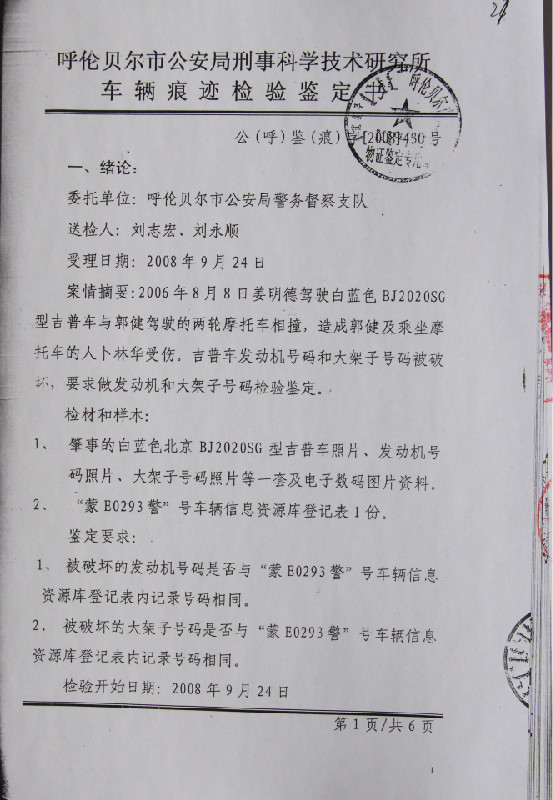 24
呼伦贝尔市公安局刑事科学技术研究所
车辆痕迹检验鉴定书
公(呼)鉴(痕) [2008]430号
物证鉴定专用
一、绪论:
委托单位: 呼伦贝尔市公安局警务督察支队
送检人: 刘志宏、刘永顺
受理日期: 2008年9月24日
案情摘要:2006年8月8日姜明德驾驶白蓝色BJ2020SG
型吉普车与郭健驾驶的两轮摩托车相撞,造成郭健及乘坐摩
托车的人卜林华受伤,吉普车发动机号码和大架子号码被破
坏,要求做发动机和大架子号码检验鉴定。
检材和样本:
1、 肇事的白蓝色北京BJ2020SG型吉普车照片、发动机号
码照片、大架子号码照片等一套及电子数码图片资料.
2、 “蒙E0293警”号车辆信息资源库登记表1份.
鉴定要求:
1、被破坏的发动机号码是否与“蒙E0293警”号车辆信息
资源库登记表内记录号码相同。
2、被破坏的大架子号码是否与“蒙E0293警”号车辆信息
资源库登记表内记录号码相同。
检验开始日期: 2008年9月24日
第1页/共6页